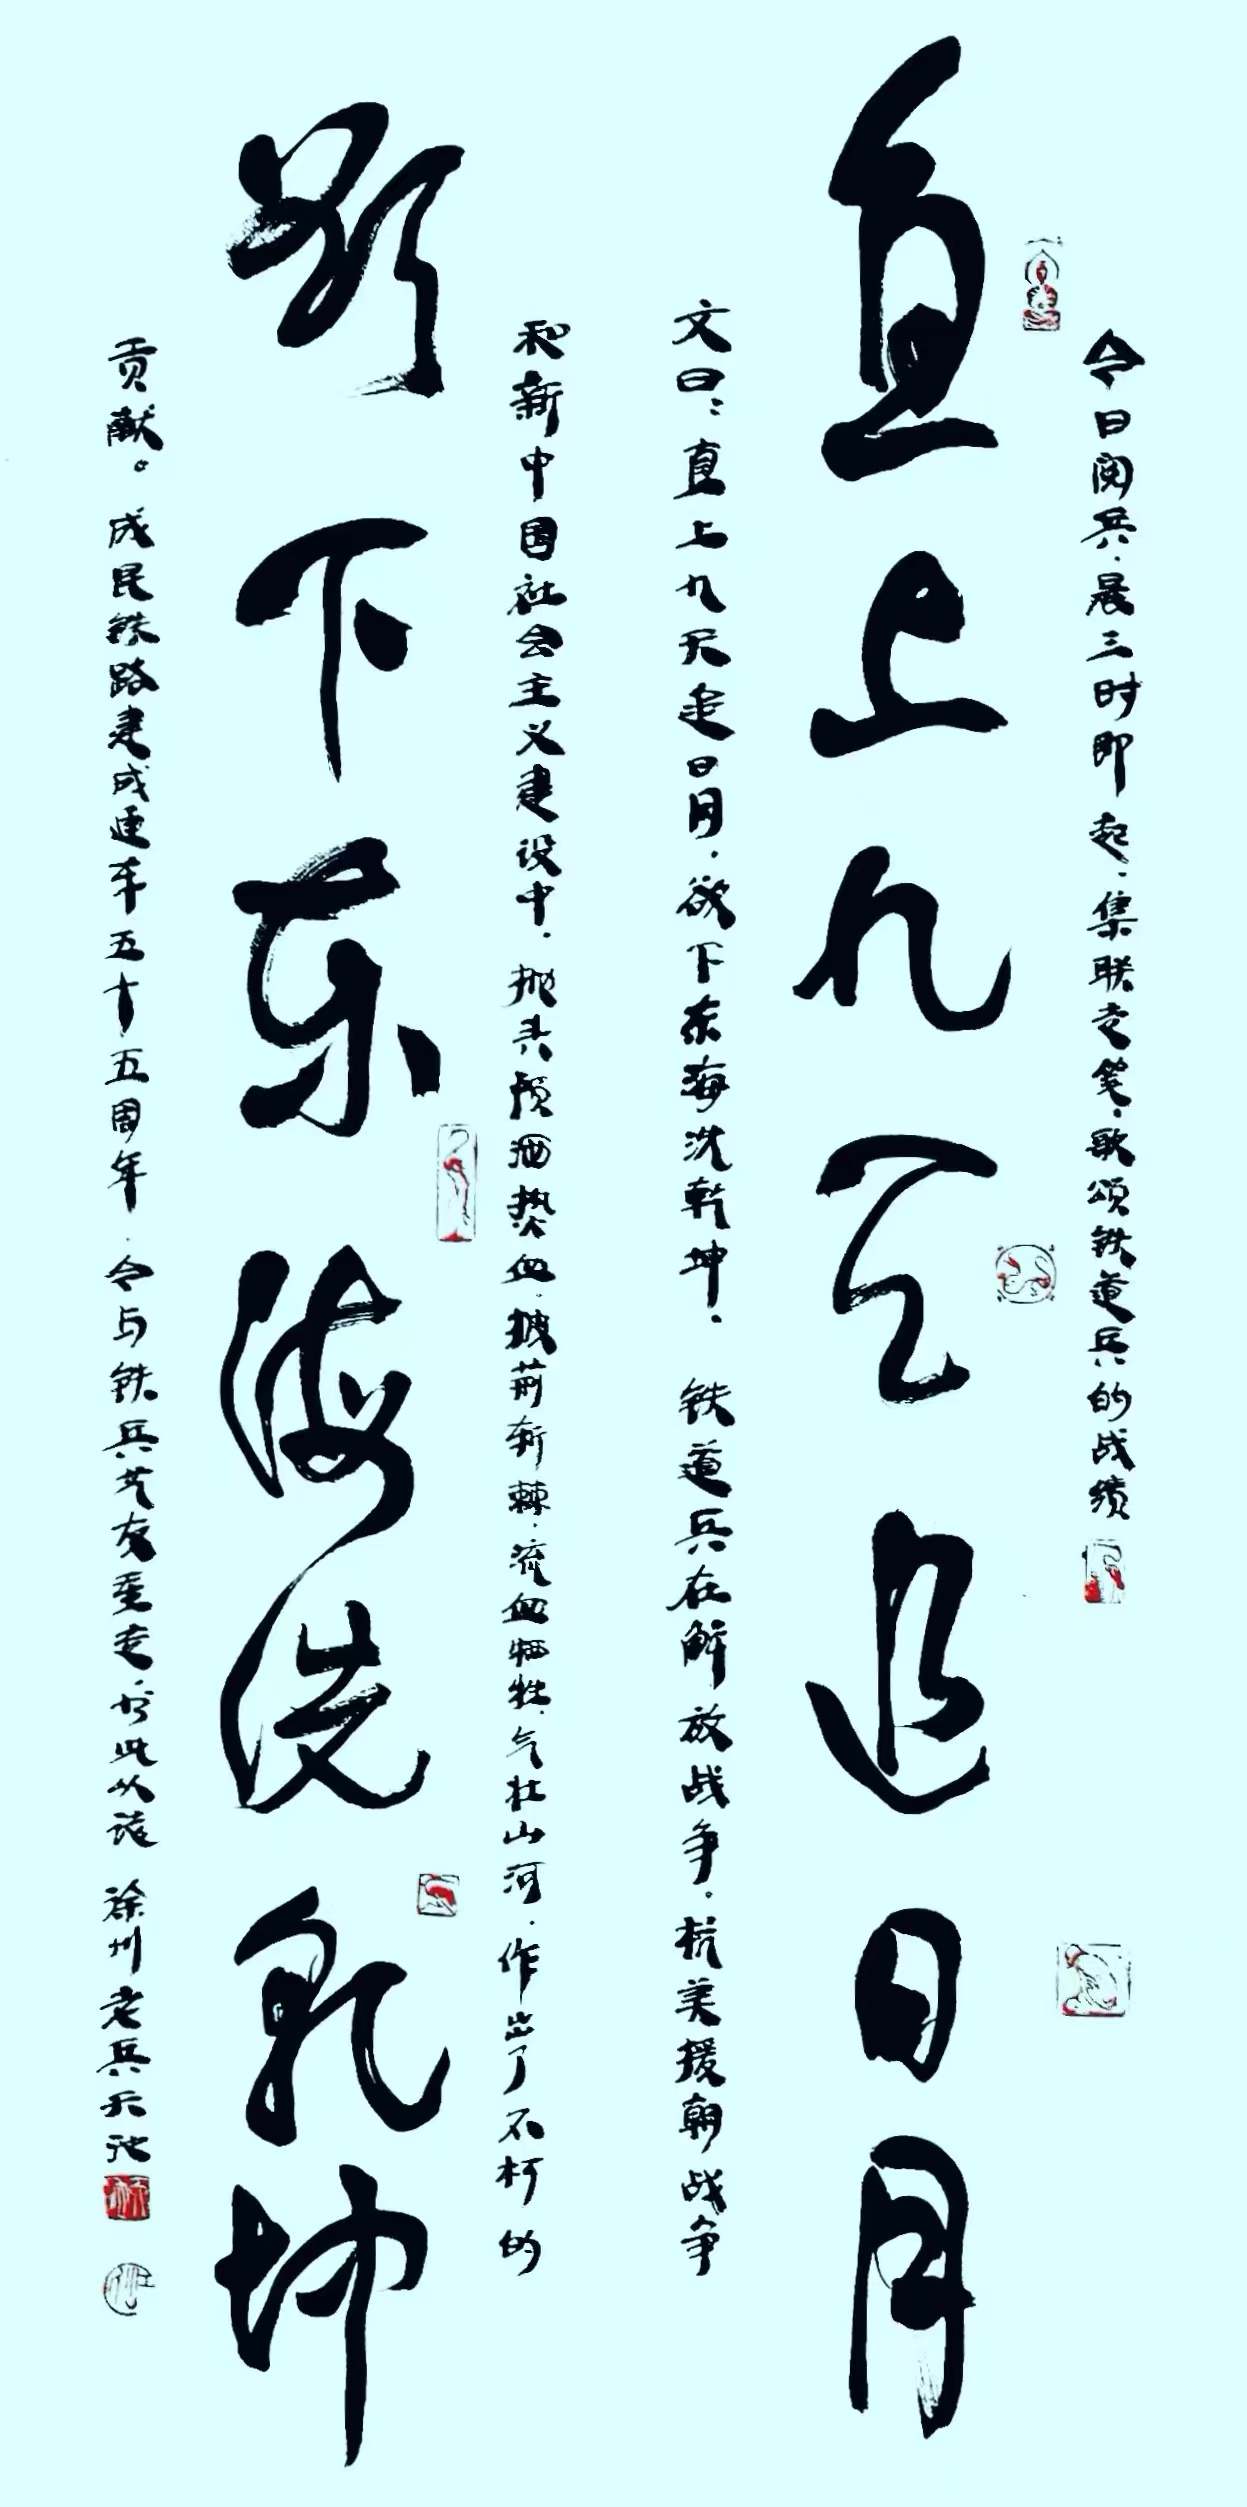 今日阅兵，晨三时即起，集联走笔，歌颂铁道兵的战绩
直上九天追日月
文曰：直上九天走日月，欲下东海洗乾坤。铁道兵在解放战争，抗美援朝战争
和新中国社会主义建设中，抛头颅洒热血，披荆斩棘，流血牺牲，气壮山河，作出了不朽的
欲下东海洗乾坤
贡献。成昆铁路建成通车五十五周年，今与铁兵艺友重走，书此以志 徐州老兵天池